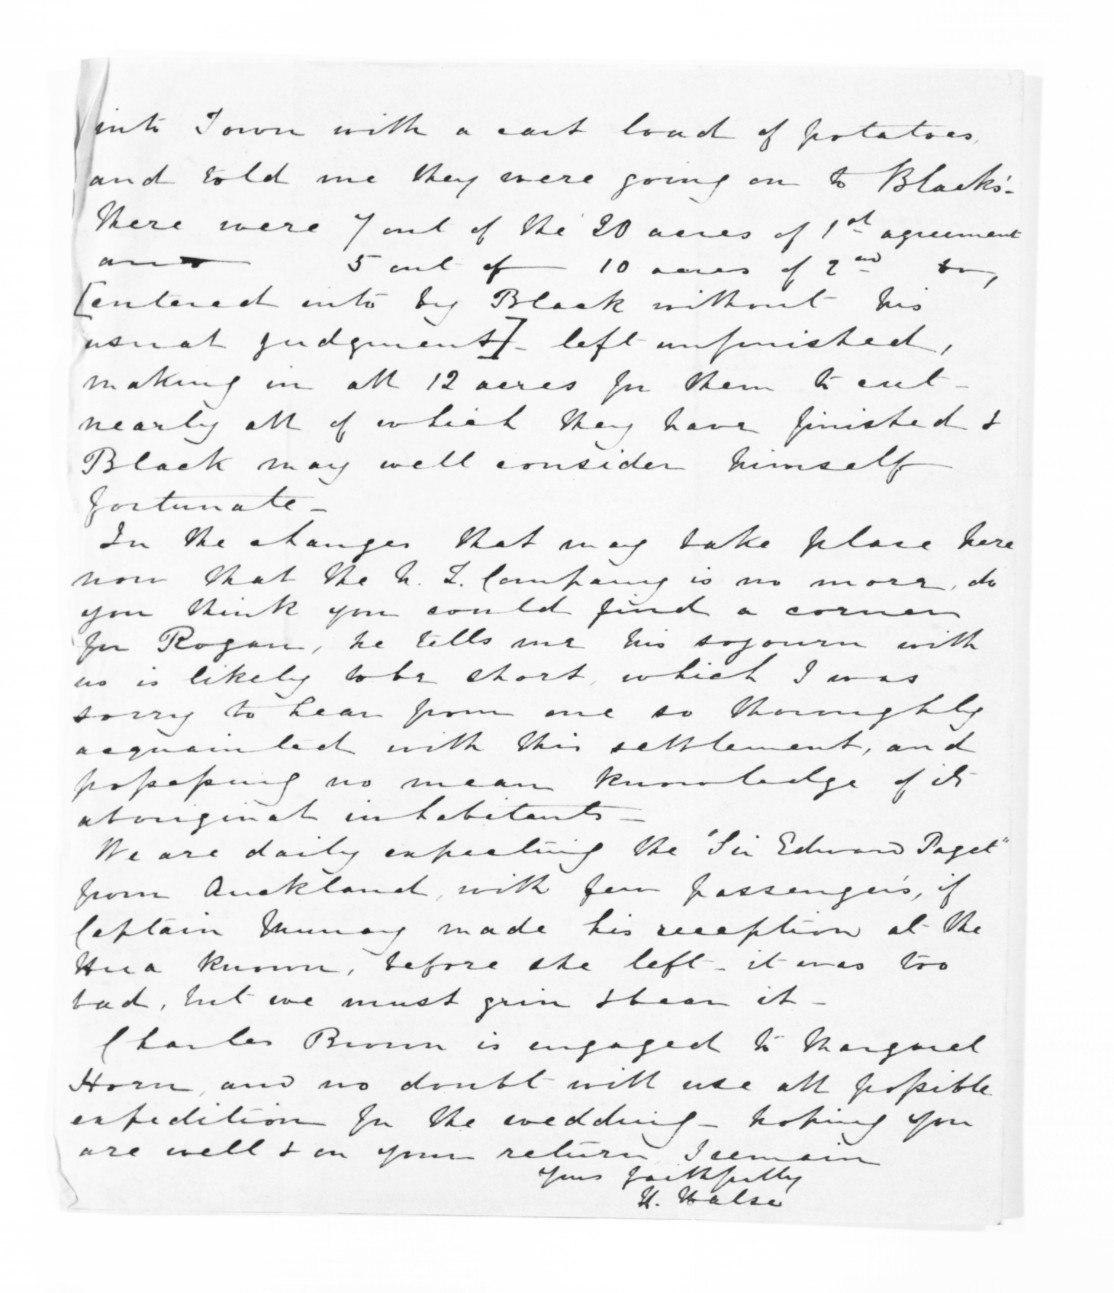 into Town with a cart load of potatoes,
and told me they were going on to Black's -
there were 7 out of the 20 acres of 1st agreement
and 5 out of 10 acres of 2nd do,
[entered into by Black without his
usual judgment] - left unfinished,
making in all 12 acres for them to cut -
nearly all of which they have finished &
Black may well consider himself
fortunate -
In the changes that may take place here
now that the N. Z. Company is no more, do
you think you could find a corner
for Rogan, he tells me his sojourn with
us is likely to be short, which I was
sorry to hear from one so thoroughly
acquainted with this settlement, and
possessing no mean knowledge of its
aboriginal inhabitants -
We are daily expecting the "Sir Edward Paget"
from Auckland, with few passengers, if
Captain Murray made his reception at the
Hua known, before she left - it was too
bad, but we must grin & bear it -
Charles Brown is engaged to Margaret
Horn, and no doubt will use all possible
expedition for the wedding - hoping you
are well & on your return, I remain
Yours faithfully
H. Halse